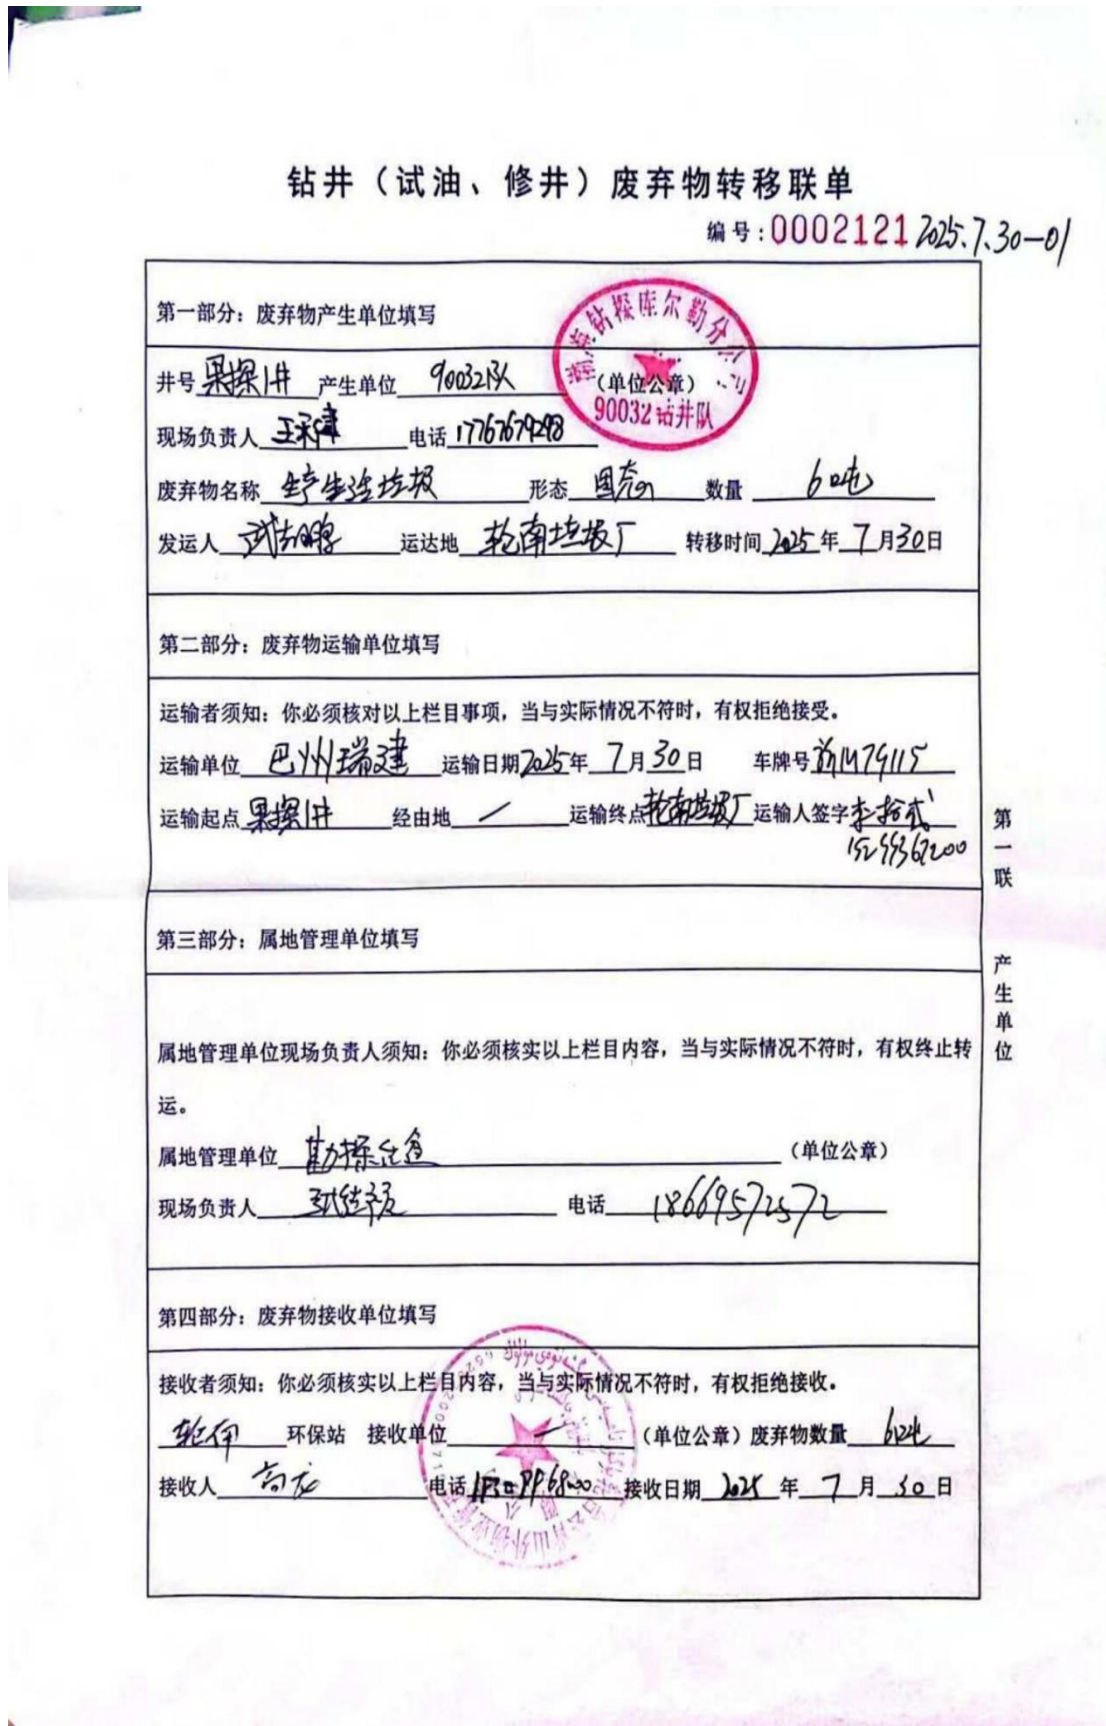 钻井（试油、修井）废弃物转移联单
编号：0002121 2025.7.30-01
第一部分：废弃物产生单位填写
井号 果探1井 产生单位 90032队 （单位公章）
钻探库尔勒分公司
90032钻井队
现场负责人 王 电话 17767679298
废弃物名称 生产生活垃圾 形态 固态 数量 60吨
发运人 武 运达地 轮南垃圾厂 转移时间 2025 年 7 月 30 日
第二部分：废弃物运输单位填写
运输者须知：你必须核对以上栏目事项，当与实际情况不符时，有权拒绝接受。
运输单位 巴州瑞建 运输日期 2025 年 7 月 30 日 车牌号
运输起点 果探1井 经由地 / 运输终点 轮南垃圾厂 运输人签字 李
第三部分：属地管理单位填写
属地管理单位现场负责人须知：你必须核实以上栏目内容，当与实际情况不符时，有权终止转
运。
属地管理单位 勘探 （单位公章）
现场负责人 电话 18669572572
第四部分：废弃物接收单位填写
接收者须知：你必须核实以上栏目内容，当与实际情况不符时，有权拒绝接收。
环保站 接收单位 （单位公章）废弃物数量
接收人 高 电话 接收日期 2025 年 7 月 30 日
第一联 产生单位